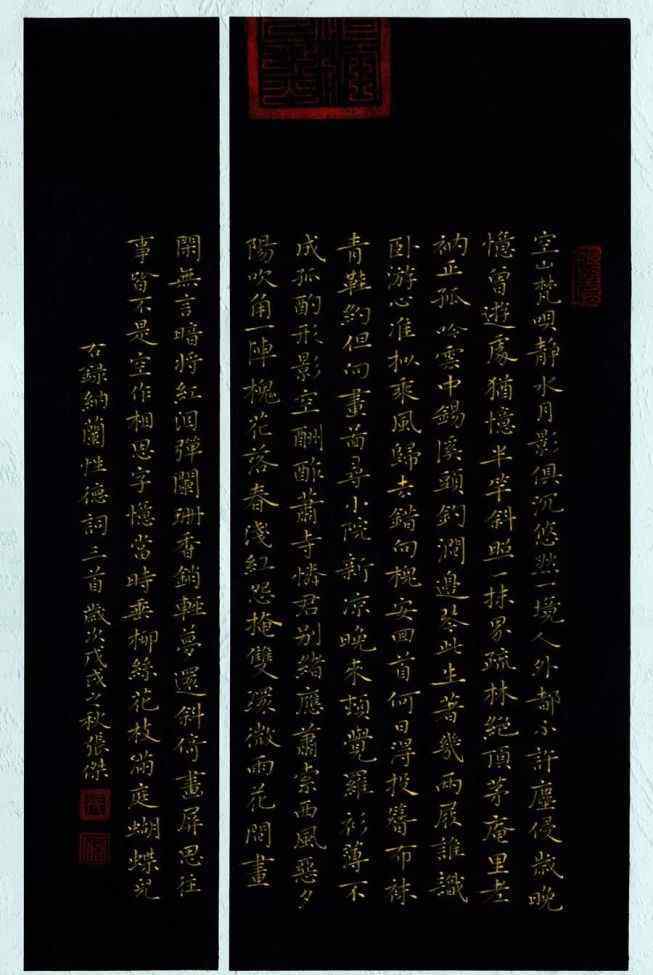 空山梵唄靜水月影俱沉悠然一境人外都不許塵侵歲晚
憶曾遊處猶憶半竿斜照一抹界疏林絕頂茅庵里老
衲正孤吟雲中錫溪頭釣澗邊琴此生著幾兩屐誰識
卧游心准拟乘風歸去錯向槐安回首何日得投簪布袜
青鞋約但向畫圖尋小院新凉晚来頓覺羅衫薄不
成孤酌形影空酬酢蕭寺憐君别緒應蕭索西風惡夕
陽吹角一陣槐花落春淺紅怨掩雙環微雨花間畫
閑無言暗将紅泪彈闌珊香銷輕夢還斜倚畫屏思往
事皆不是空作相思字憶當時垂柳絲花枝滿庭蝴蝶兒
右錄納蘭性德詞三首歲次戊戌之秋張傑